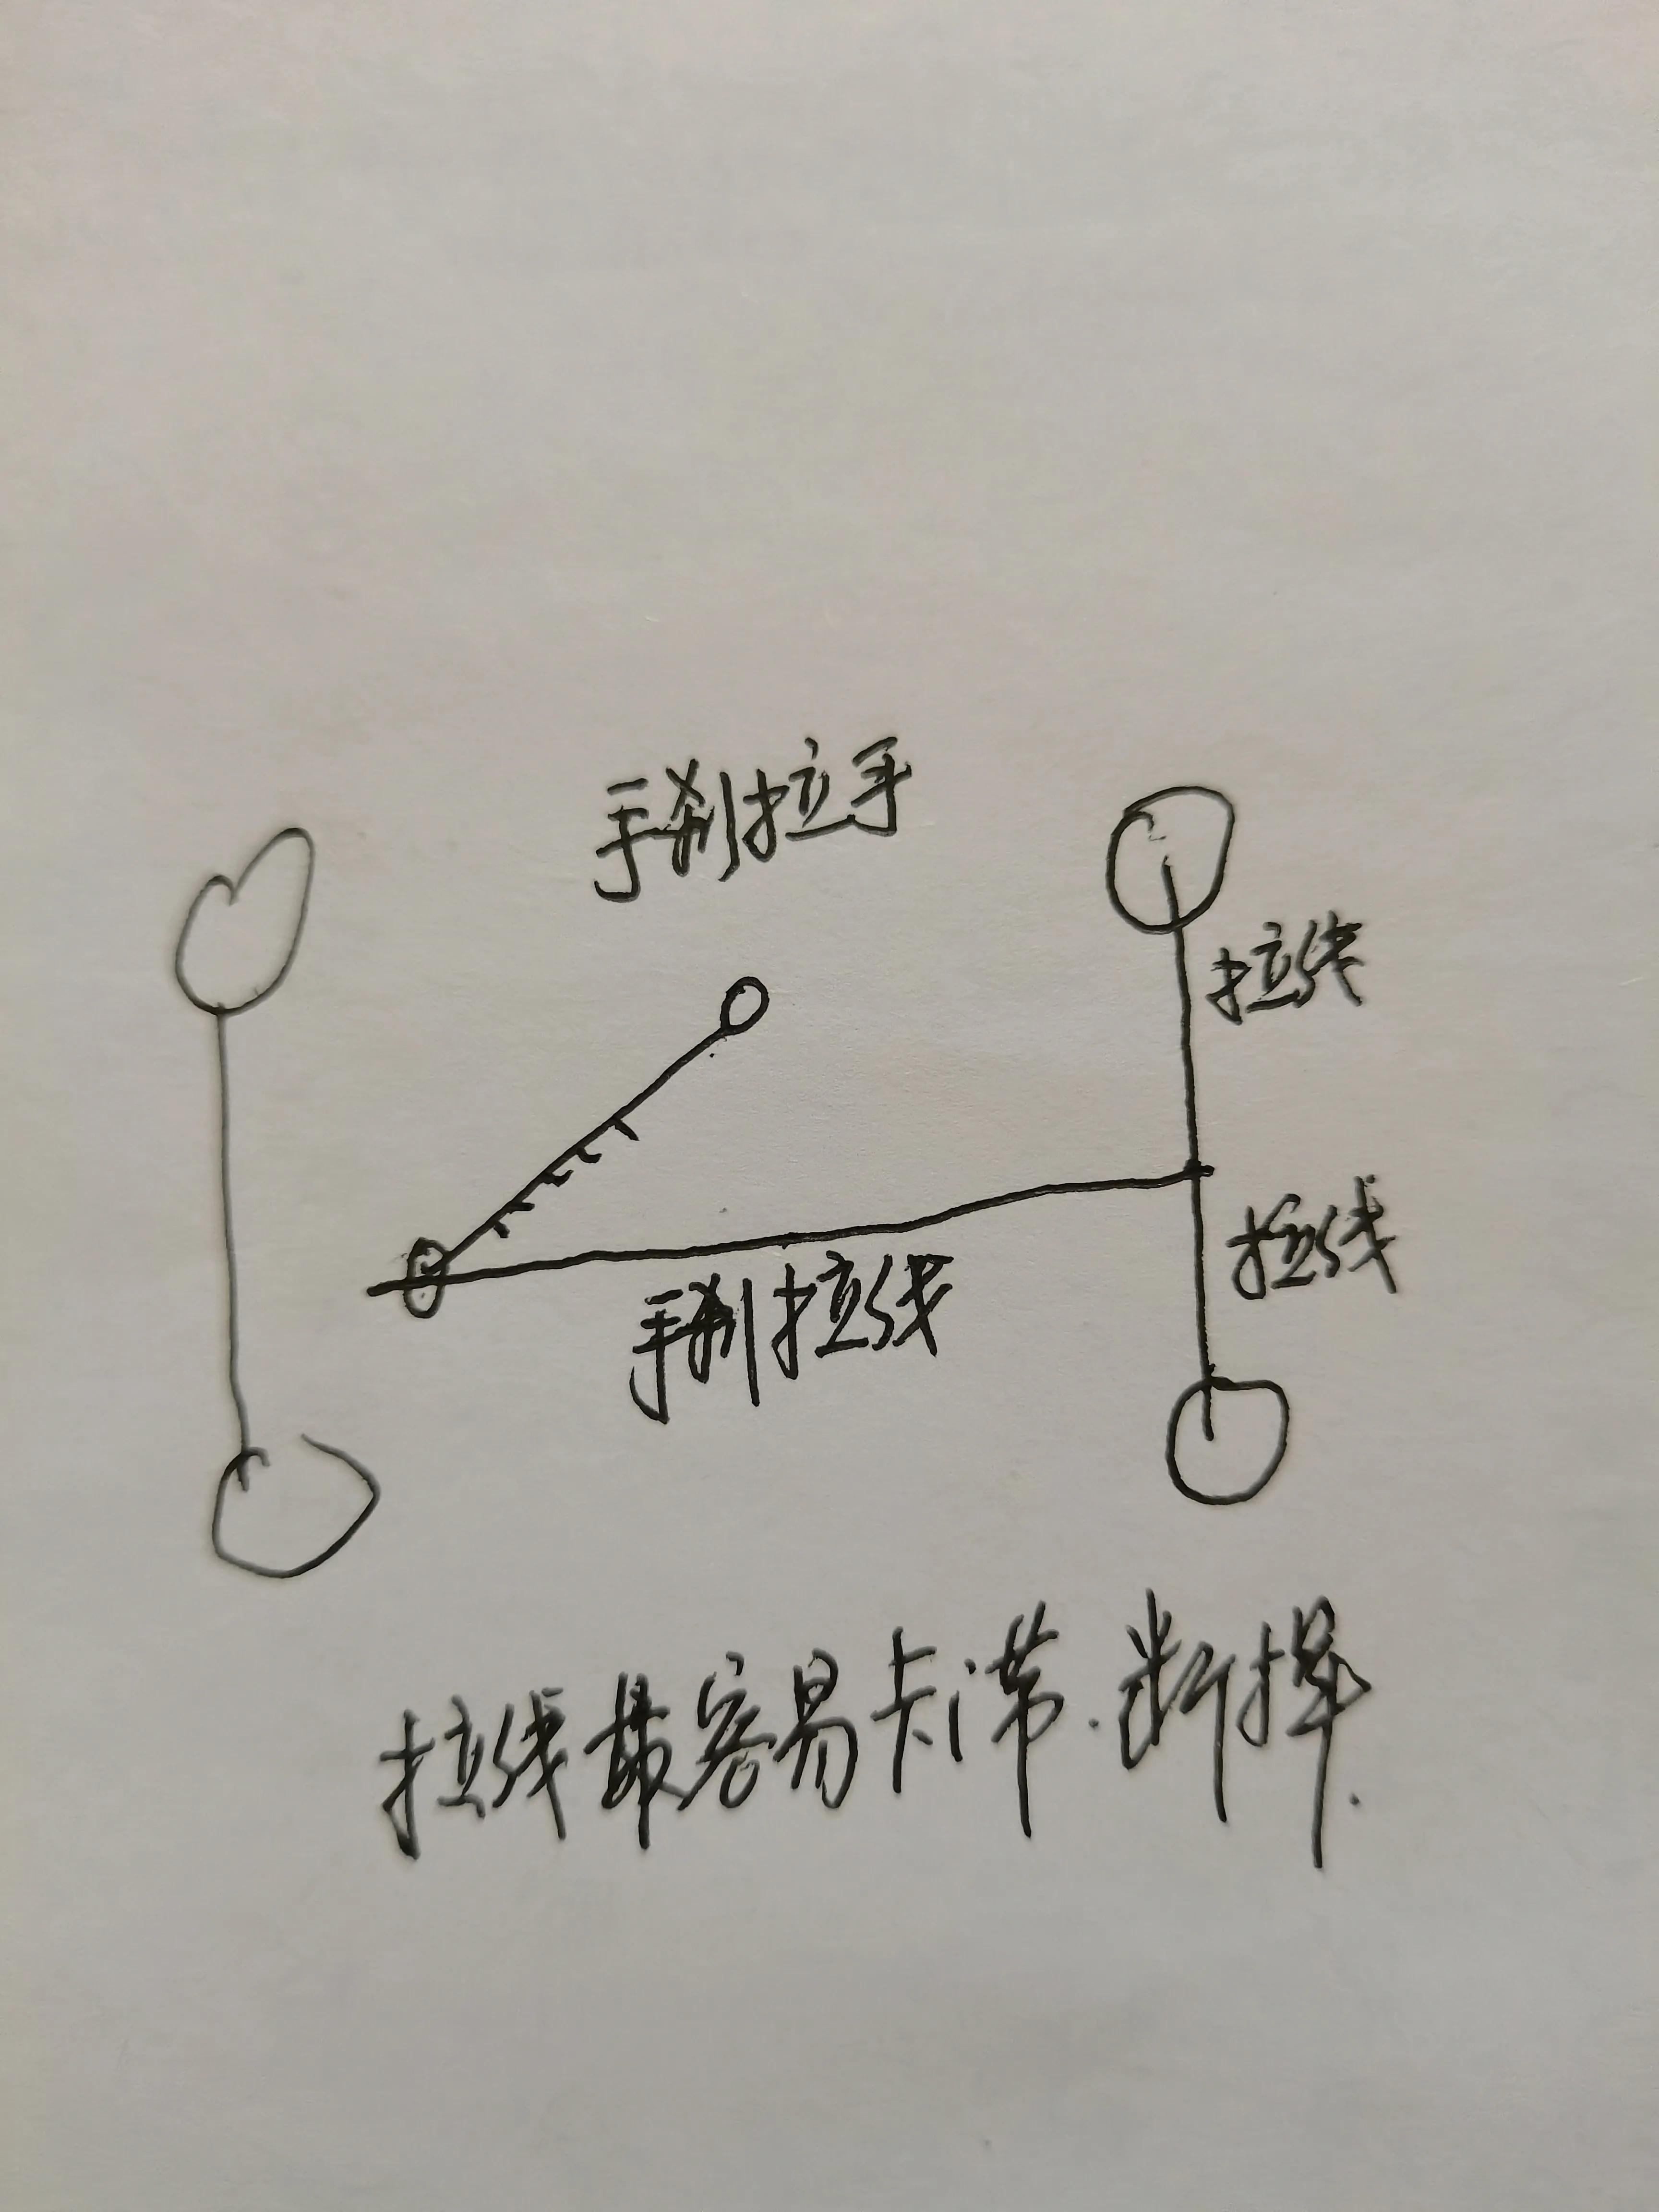 手刹拉手
拉线
拉线
手刹拉线
拉线最容易卡滞.断掉.